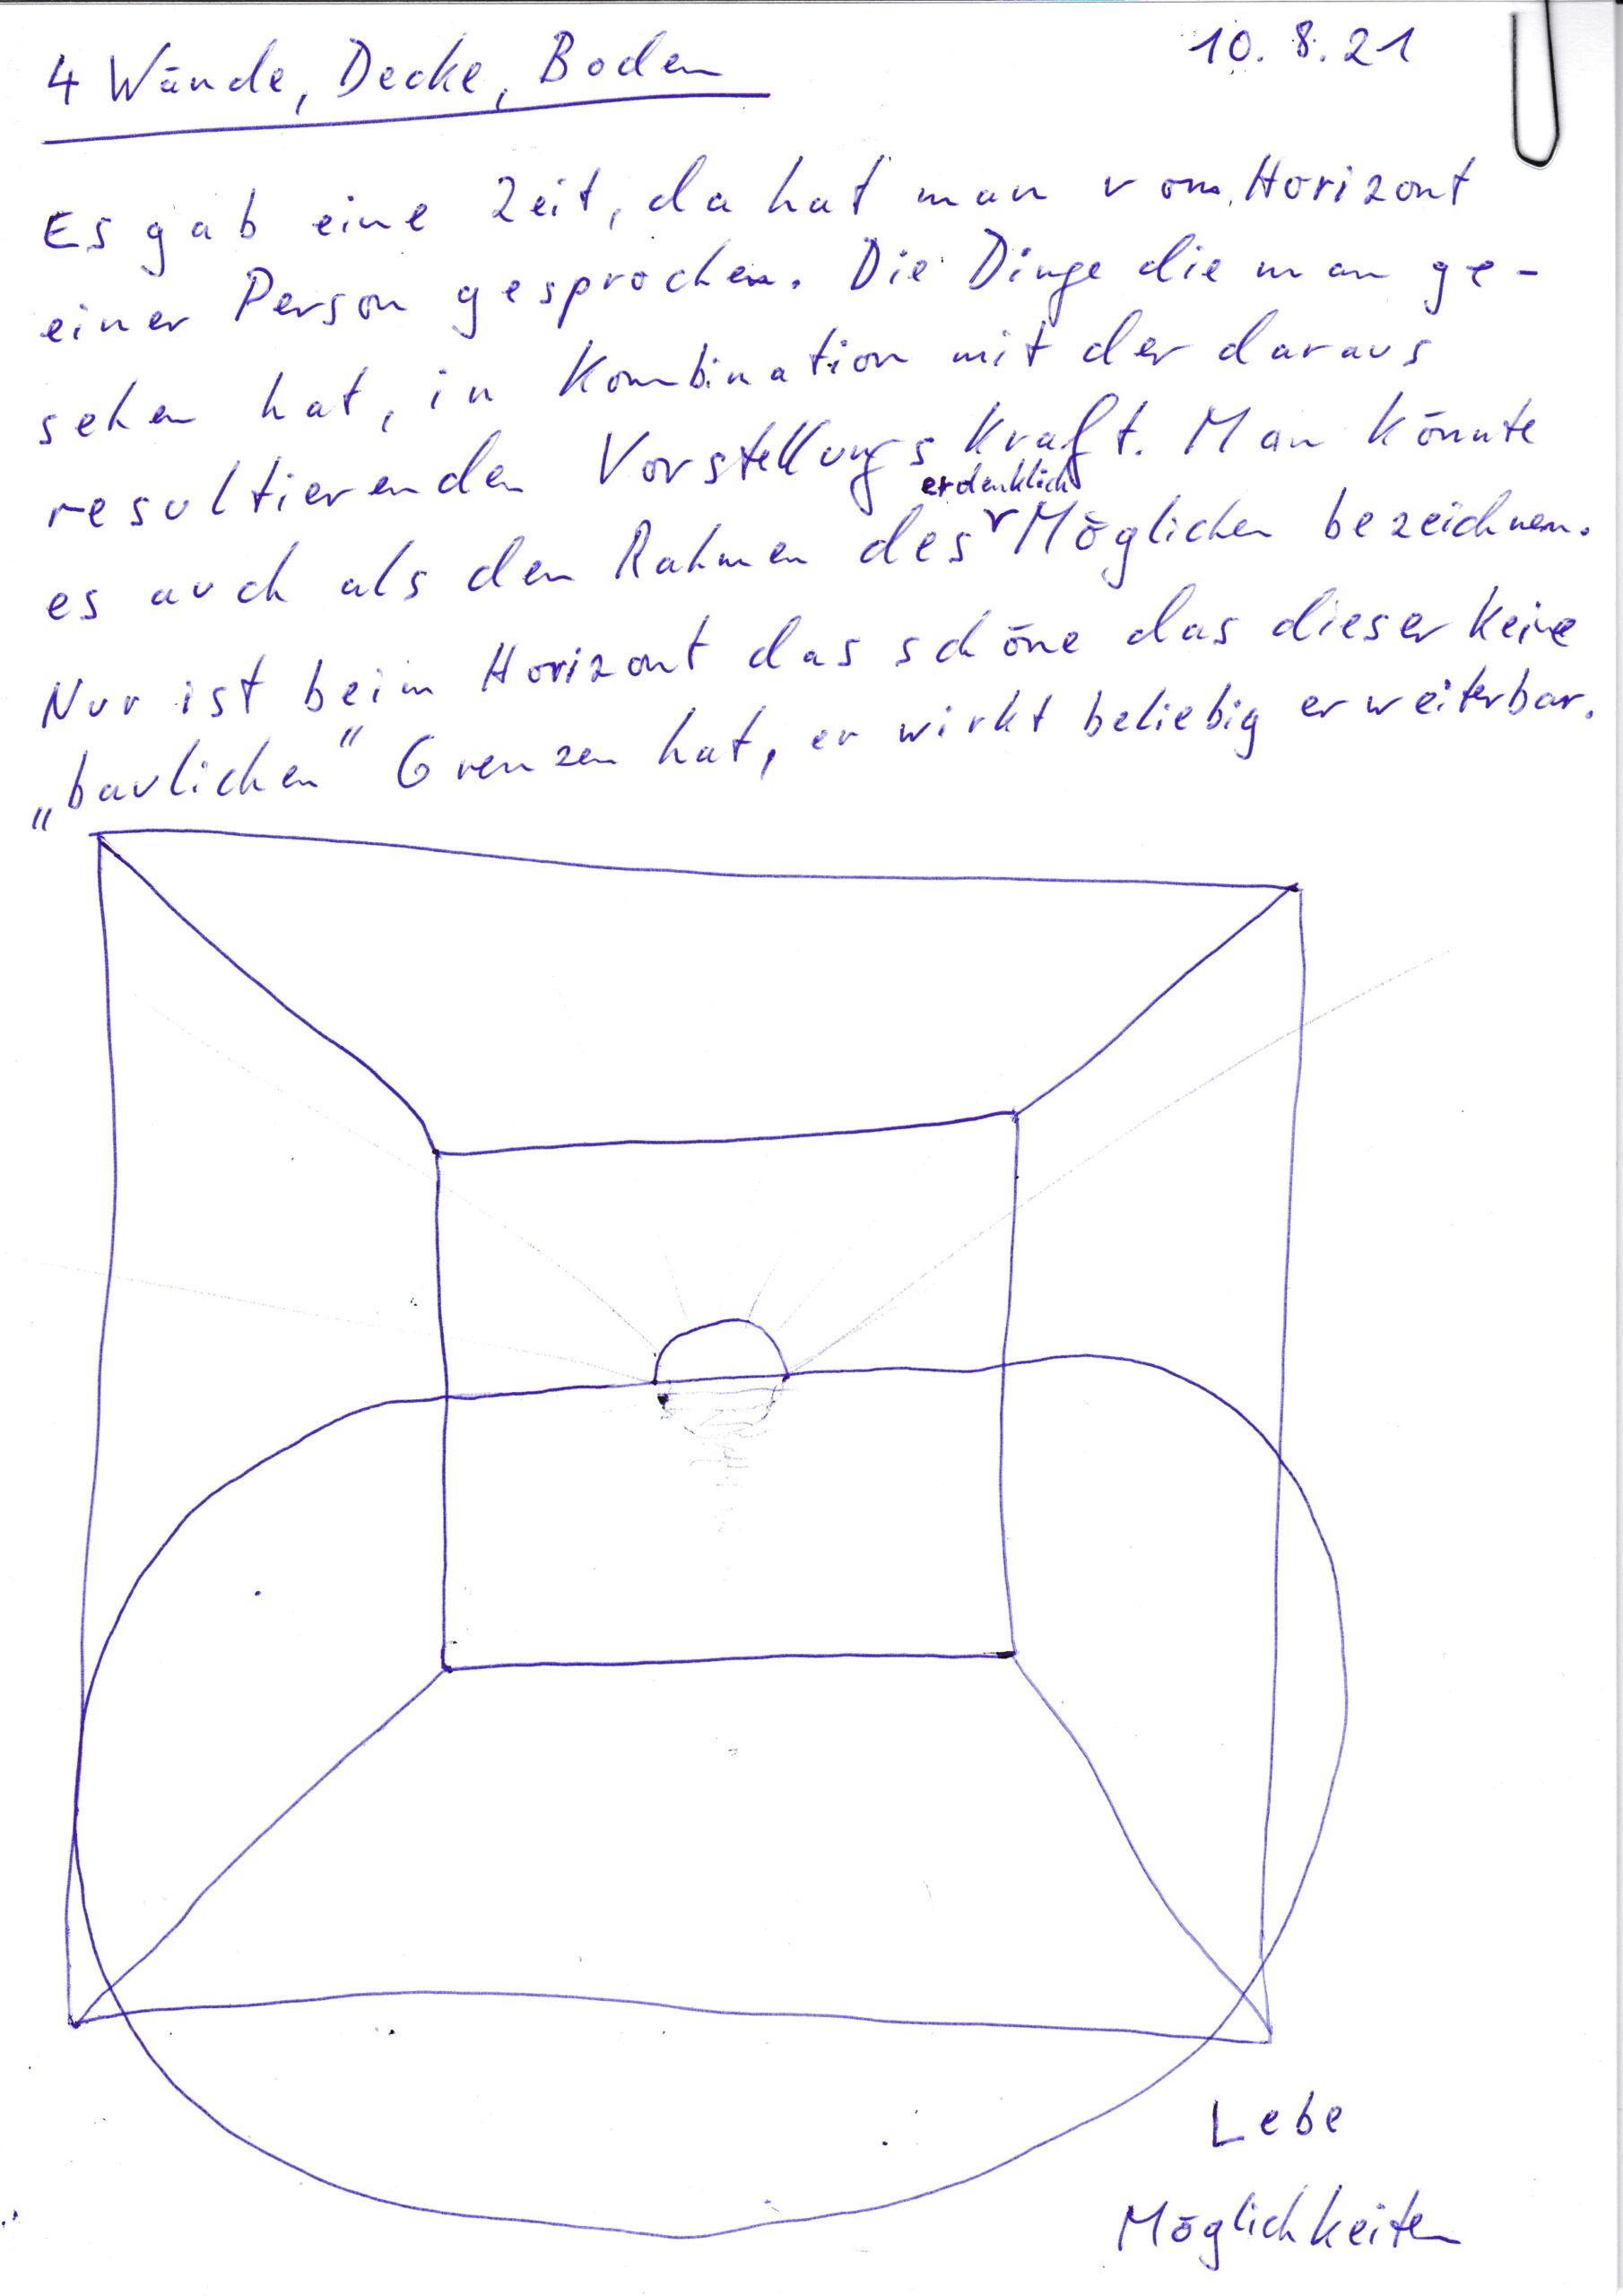 4 Wände, Decke, Boden
10.8.21
Es gab eine Zeit, da hat man vom Horizont
einer Person gesprochen. Die Dinge die man ge-
sehen hat, in Kombination mit der daraus
resultierenden Vorstellungskraft. Man könnte
erdenklich
es auch als den Rahmen des Möglichen bezeichnen.
Nur ist beim Horizont das schöne das dieser keine
„baulichen" Grenzen hat, er wirkt beliebig erweiterbar.
Lebe
Möglichkeiten